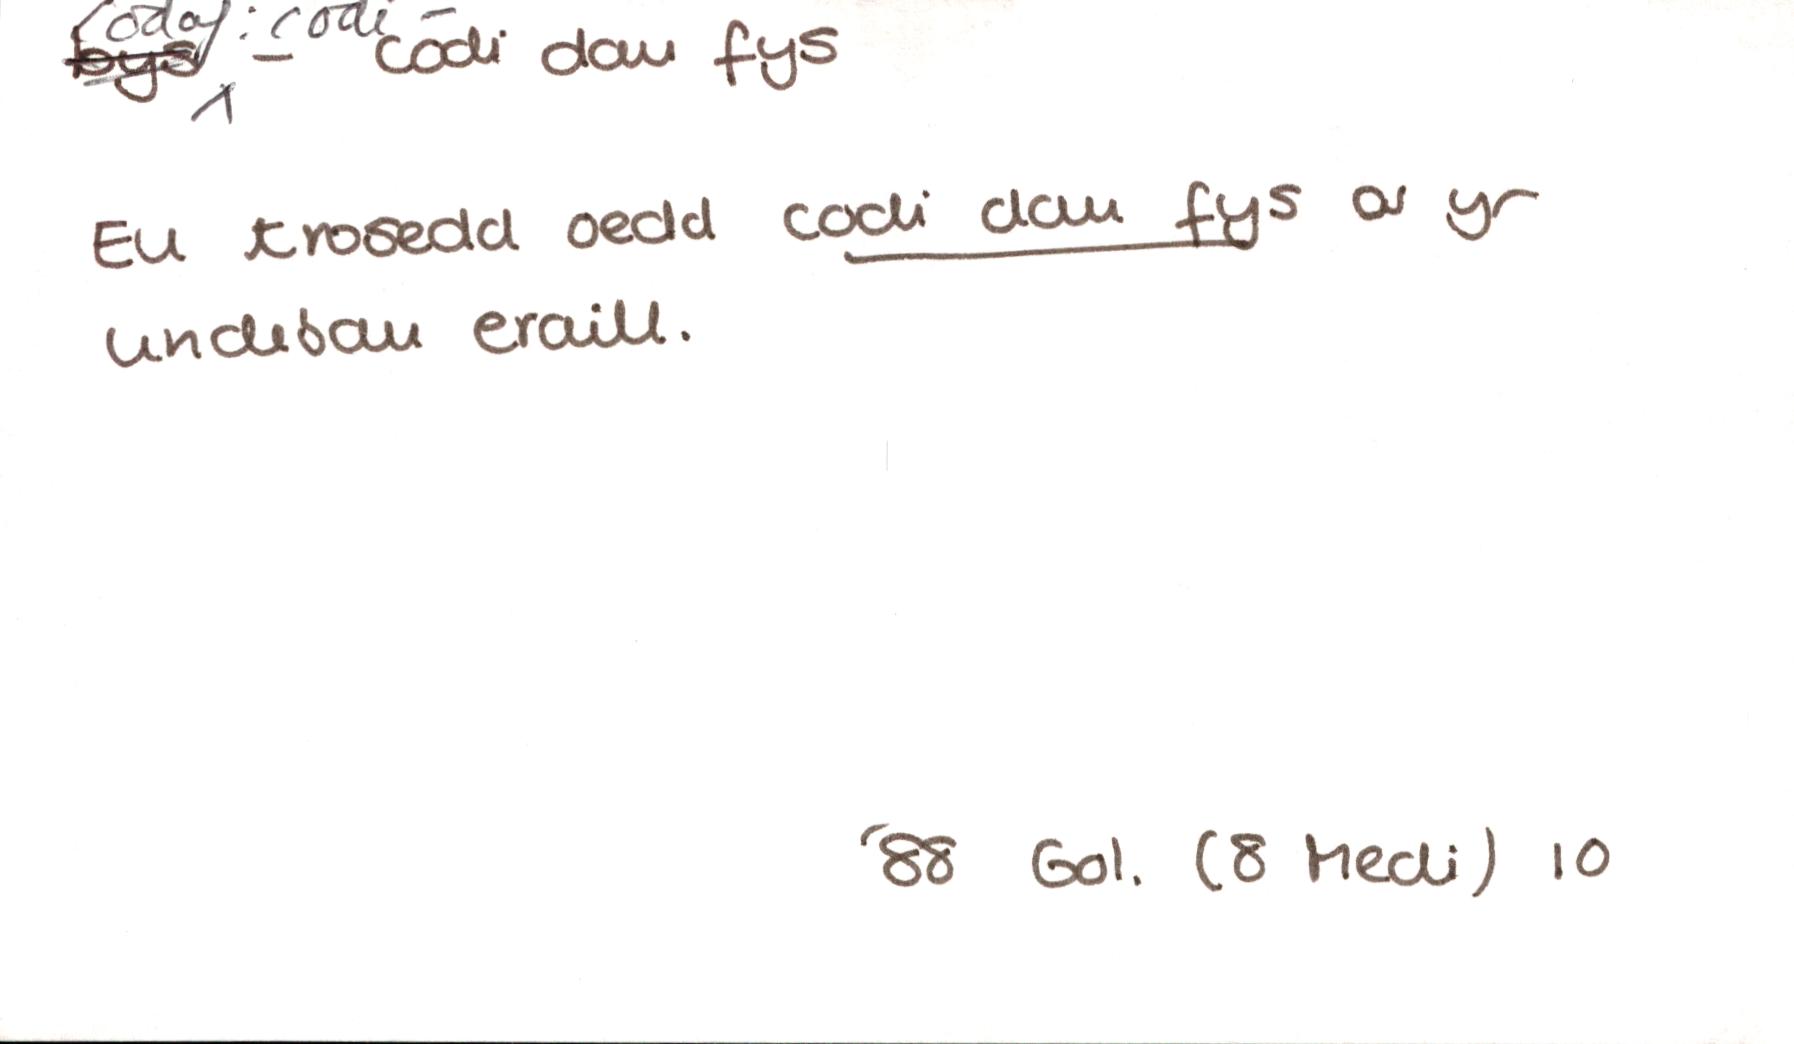 Codaf: codi –
bys – codi dau fys
Eu trosedd oedd codi dau fys ar yr
undebau eraill.
'88 Gol. (8 Medi) 10